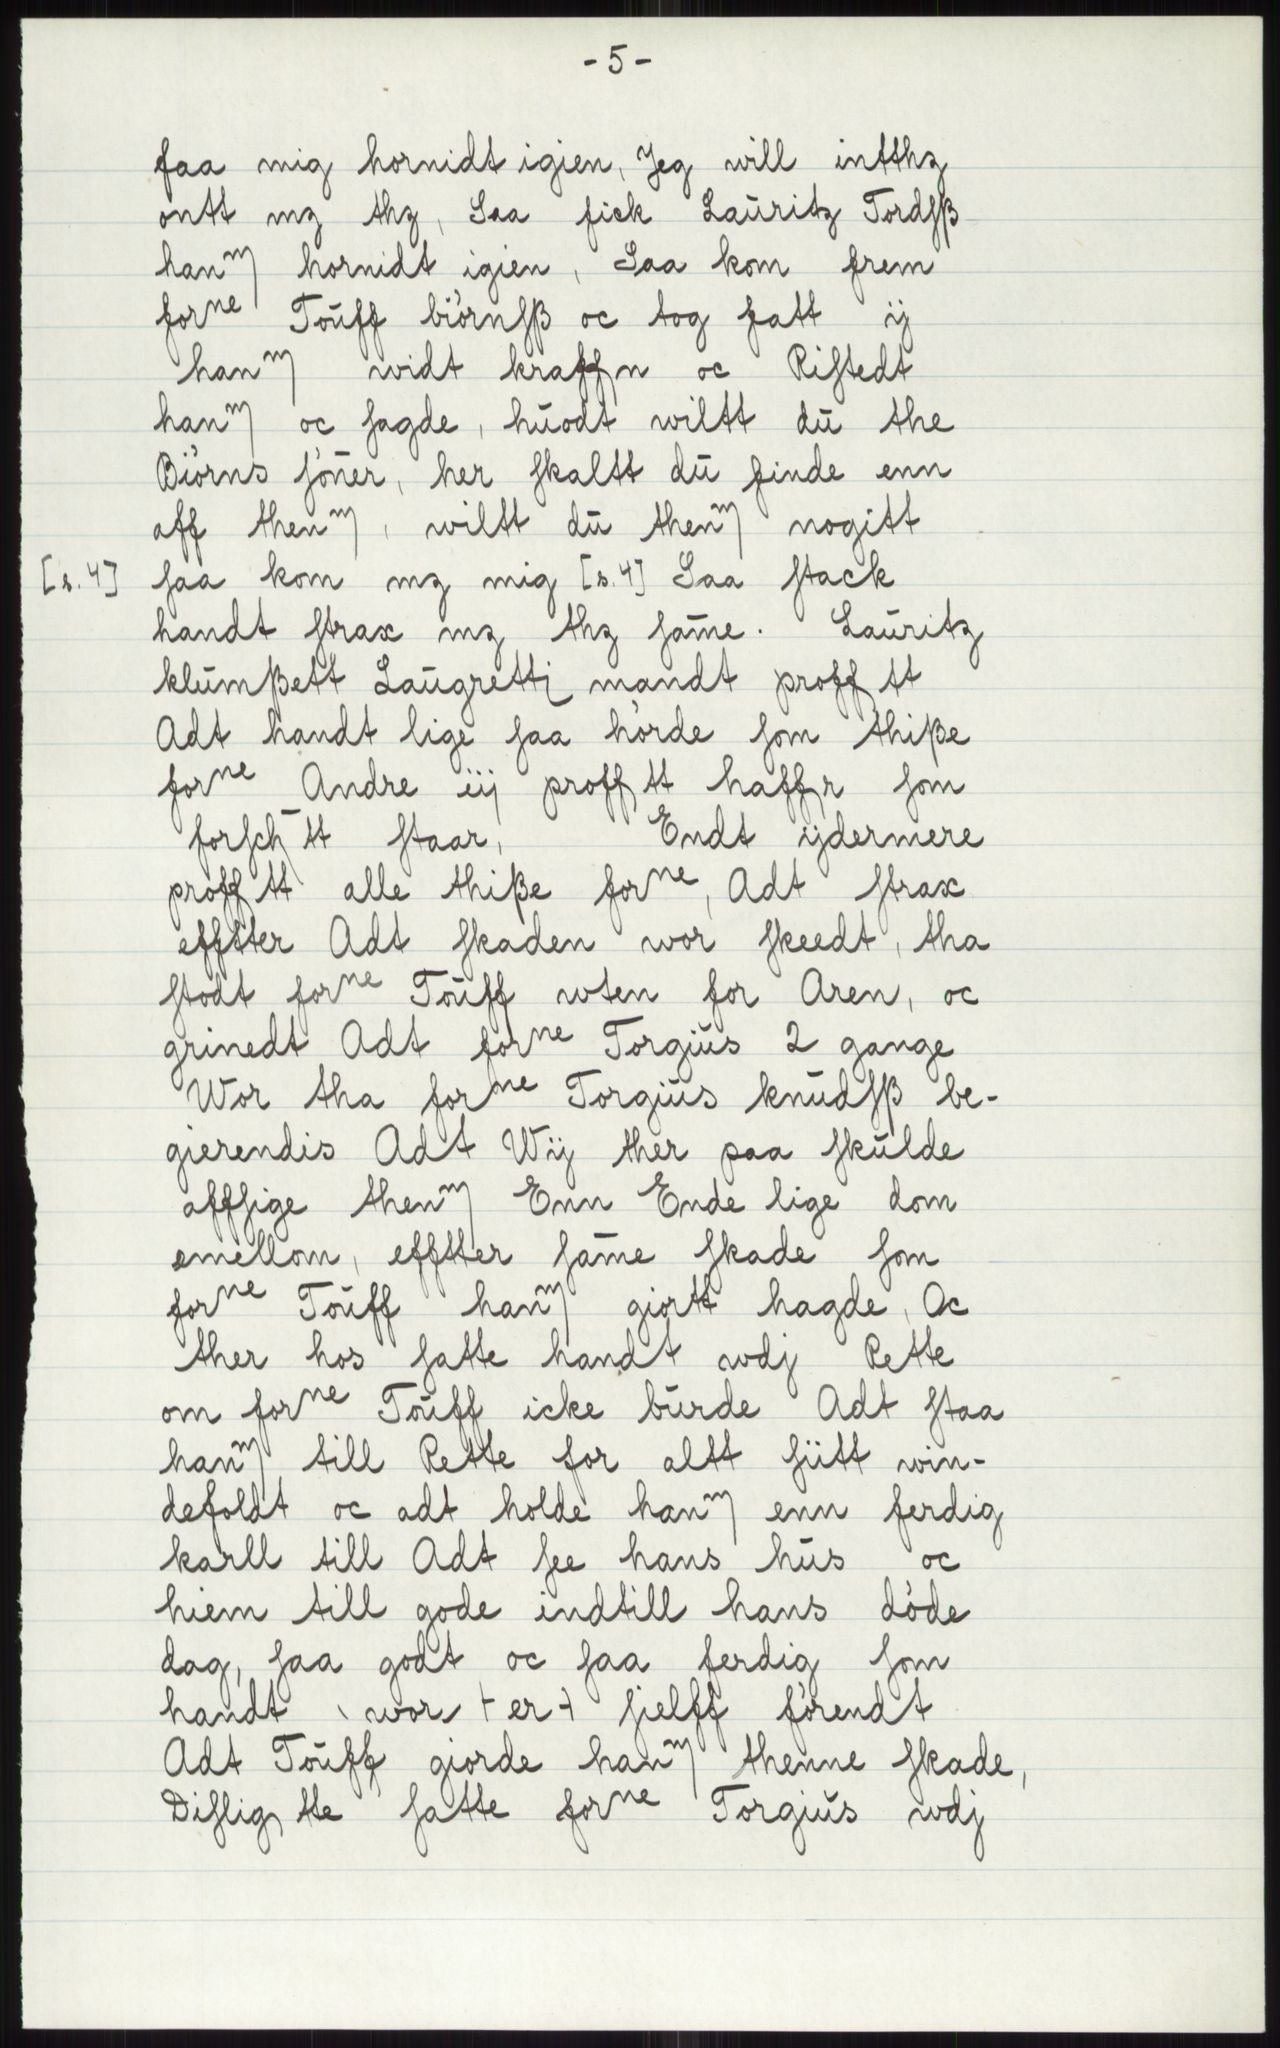 - 5 -
faa mig hornidt igien, Jeg will intthz
ontt mz thz, Saa fick Laŭritz Tordsß
han͞m hornidt igien, Saa kom frem
forne Toŭff biörnsß oc tog fatt ij
han͞m widt kraffn oc Ristedt
han͞m oc sagde, hŭodt wiltt dŭ the
Biörns söner, her skaltt dŭ finde enn
aff then͞m, wiltt dŭ then͞m nogitt
[s. 4] saa kom mz mig [s. 4] Saa stack
handt strax mz thz sam̄e. Laŭritz
klŭmßett Laŭgrettj mandt profftt
Adt handt lige saa hörde som thiße
forne Andre iij profftt haffr som
forsch̄tt staar, Endt ijdermere
profftt alle thiße forne, Adt strax
effster Adt skaden wor skeedt, tha
stodt forne Toŭff wten for Aren, oc
grinedt Adt forne Torgiŭs 2 gange
Wor tha forne Torgiŭs knŭdsß be-
gierendis Adt Wij ther paa skŭlde
affsige then͞m Enn Ende lige dom
emellom, effster sam̄e skade som
forne Toŭff han͞m giortt hagde, Oc
ther hos satte handt wdj Rette
om forne Toŭff icke bŭrde Adt staa
han͞m till Rette for altt siitt win-
defoldt oc adt holde han͞m enn ferdig
karll till Adt see hans hŭs oc
hiem till gode indtill hans döde
dag, saa godt oc saa ferdig som
handt wor [er] sielff förendt
Adt Toŭff giorde han͞m thenne skade,
Disligtte satte forne Torgiŭs wdj